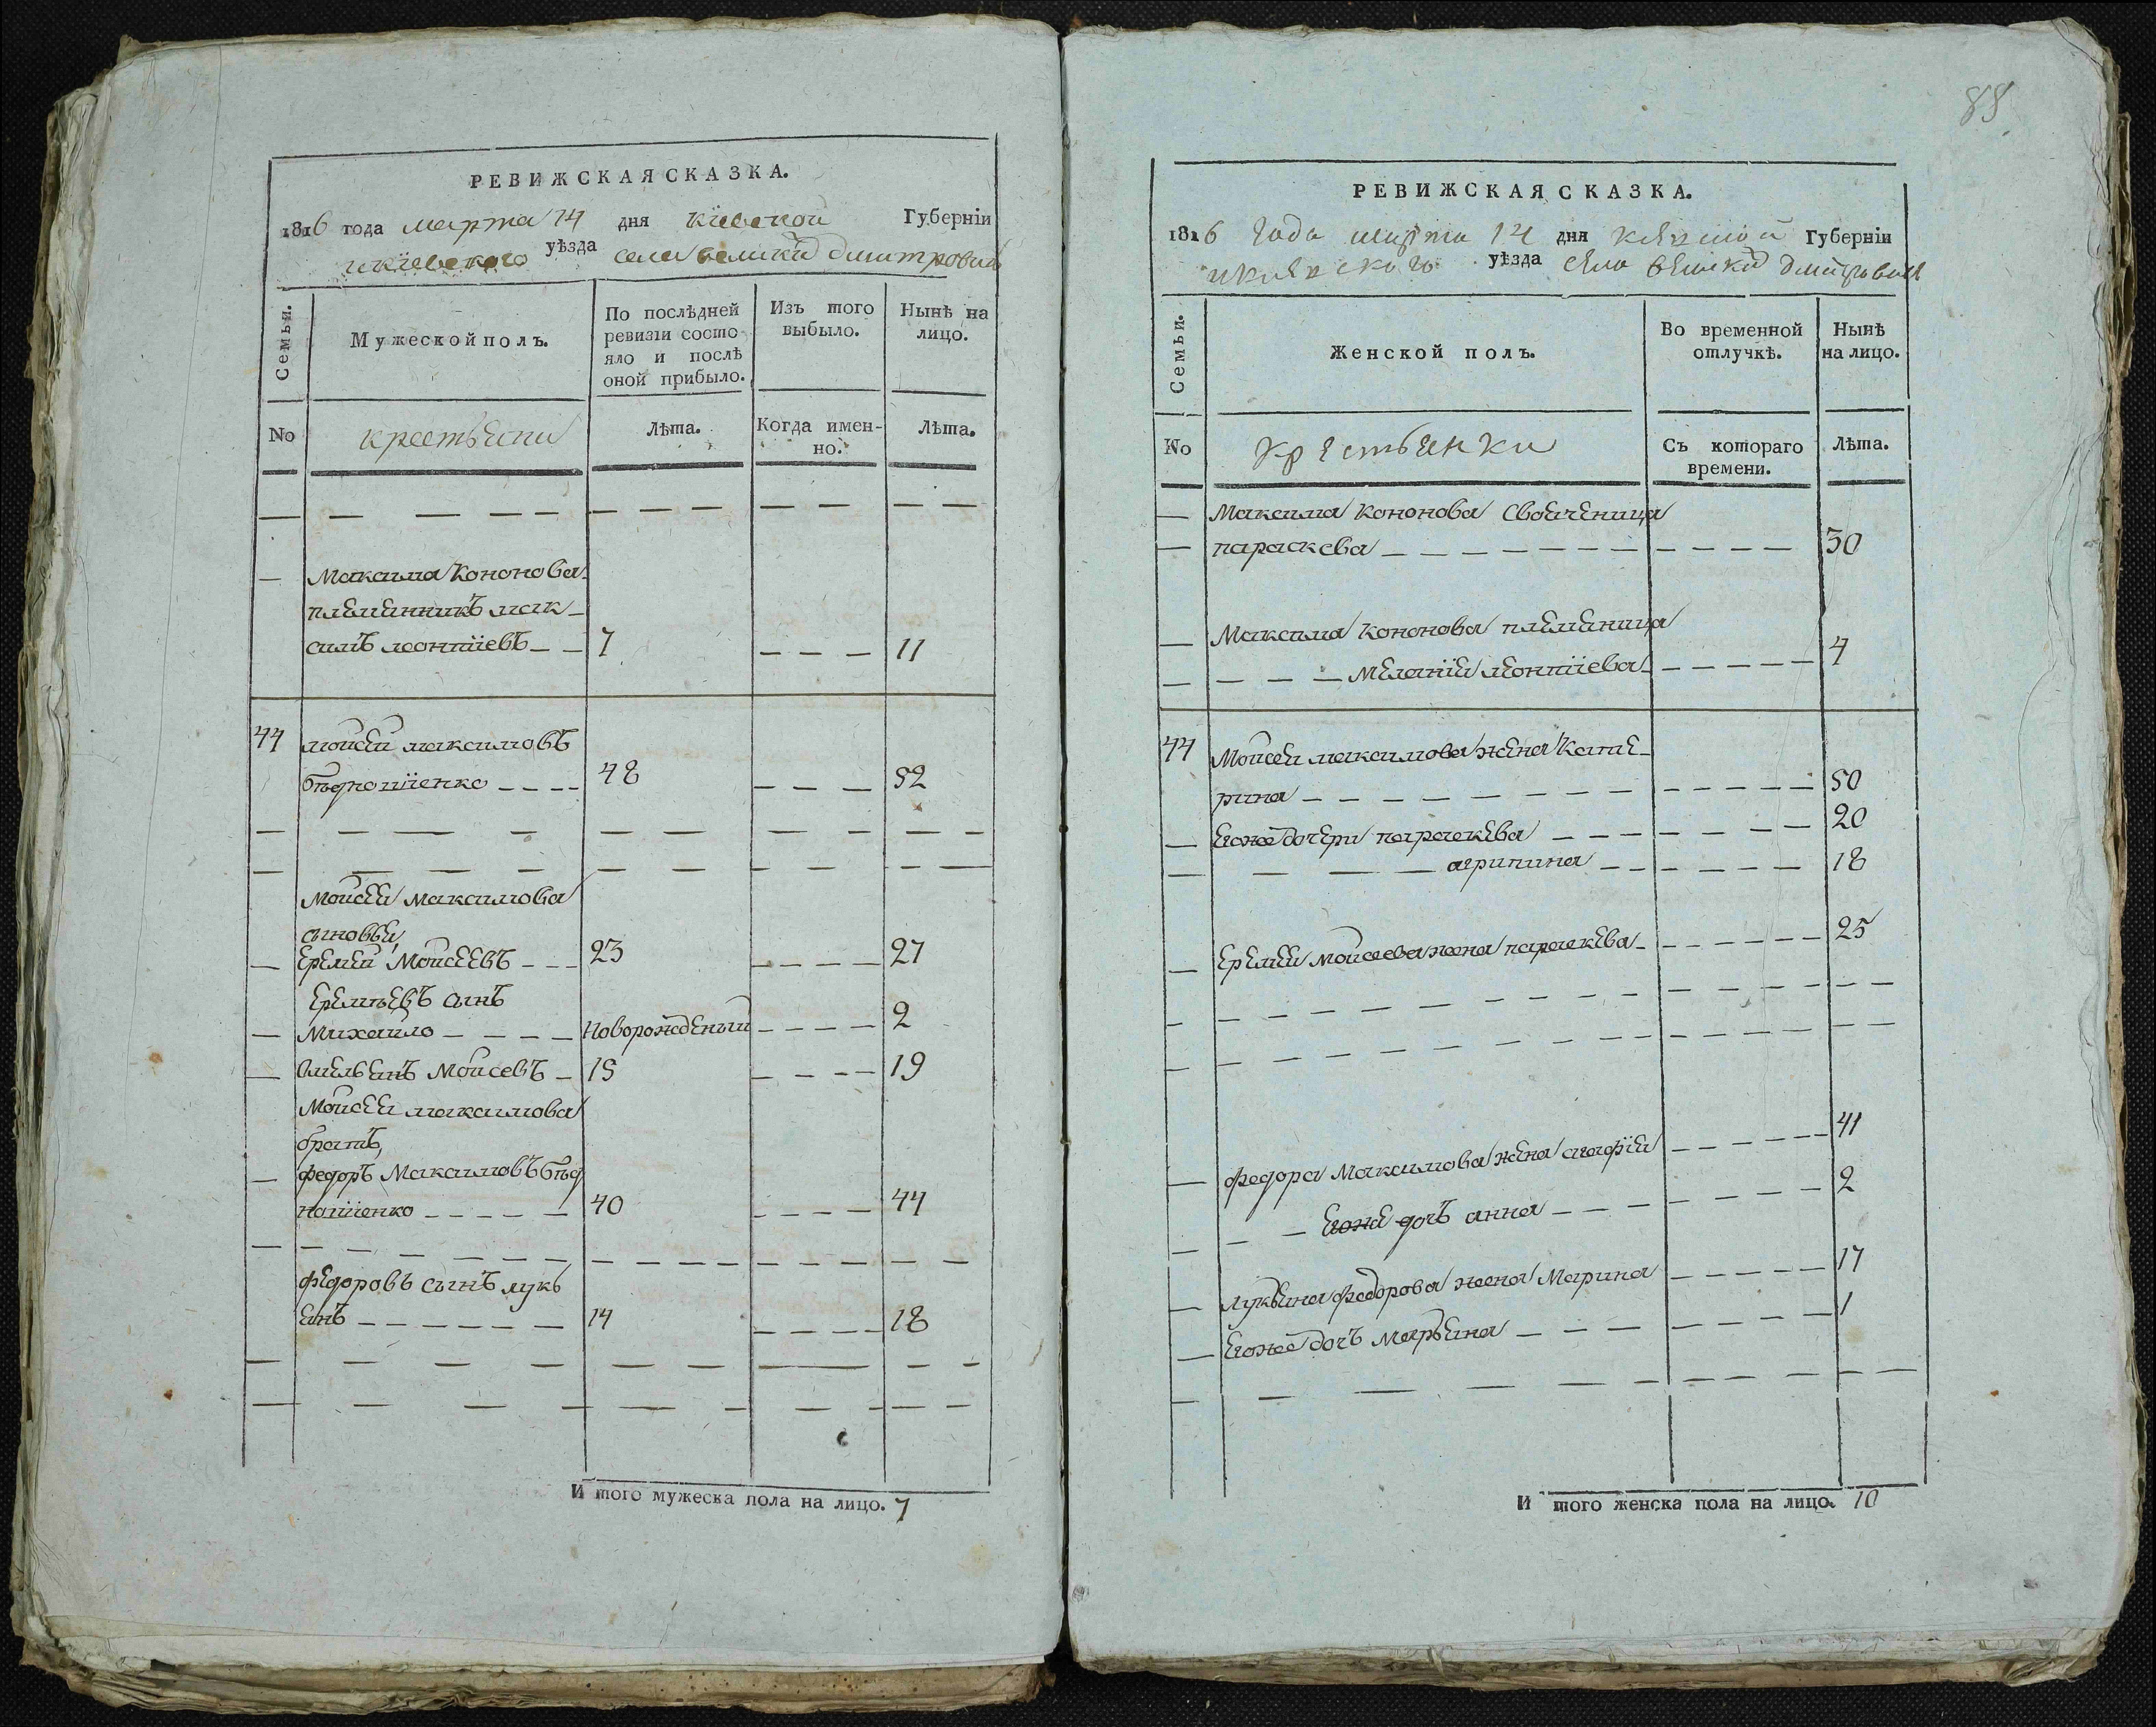 РЕВИЖСКАЯ СКАЗКА.
1816 года марта 14 дня Кіевской Губерніи
и кіевского уѣзда села великих дмитрович
Семьи.
Мужеской полъ.
По послѣдней ревизіи состояло и послѣ оной прибыло.
Изъ того выбыло.
Нынѣ на лицо.
No
крестьяни
Лѣта.
Когда именно.
Лѣта.
Максима Кононова
племянникъ мак-
симъ леонтіевъ 7 11
44 мойсей максимовъ
48 52
Мойсея Максимова
сыновья
Еремей Мойсеевъ 23 27
Еремѣевъ сынъ
Михайло Новорожденый 2
Омельянъ Мойсевъ 15 19
Мойсея максимова
братъ
федоръ Максимовъ бѣд
40 44
федоровъ сынъ лукь
янъ 14 18
И того мужеска пола на лицо. 7
88
РЕВИЖСКАЯ СКАЗКА.
1816 года марта 14 дня Кіевской Губерніи
и кіевского уѣзда села великих дмитрович
Семьи.
Женской полъ.
Во временной отлучкѣ.
Нынѣ на лицо.
No
крестьянки
Съ котораго времени.
Лѣта.
Максима Кононова своячєница
параскева 30
Максима Кононова племяница
Меланія леонтіева 4
44 Мойсея максимова жена Кате-
рина 50
Егоже дочери параскева 20
агрипина 18
Еремея мойсеева жена параскева 25
федора Максимова жена агафія 41
Егоже дочъ анна 2
лукьяна федорова жена Марина 17
Егоже дочъ марьяна 1
И того женска пола на лицо. 10